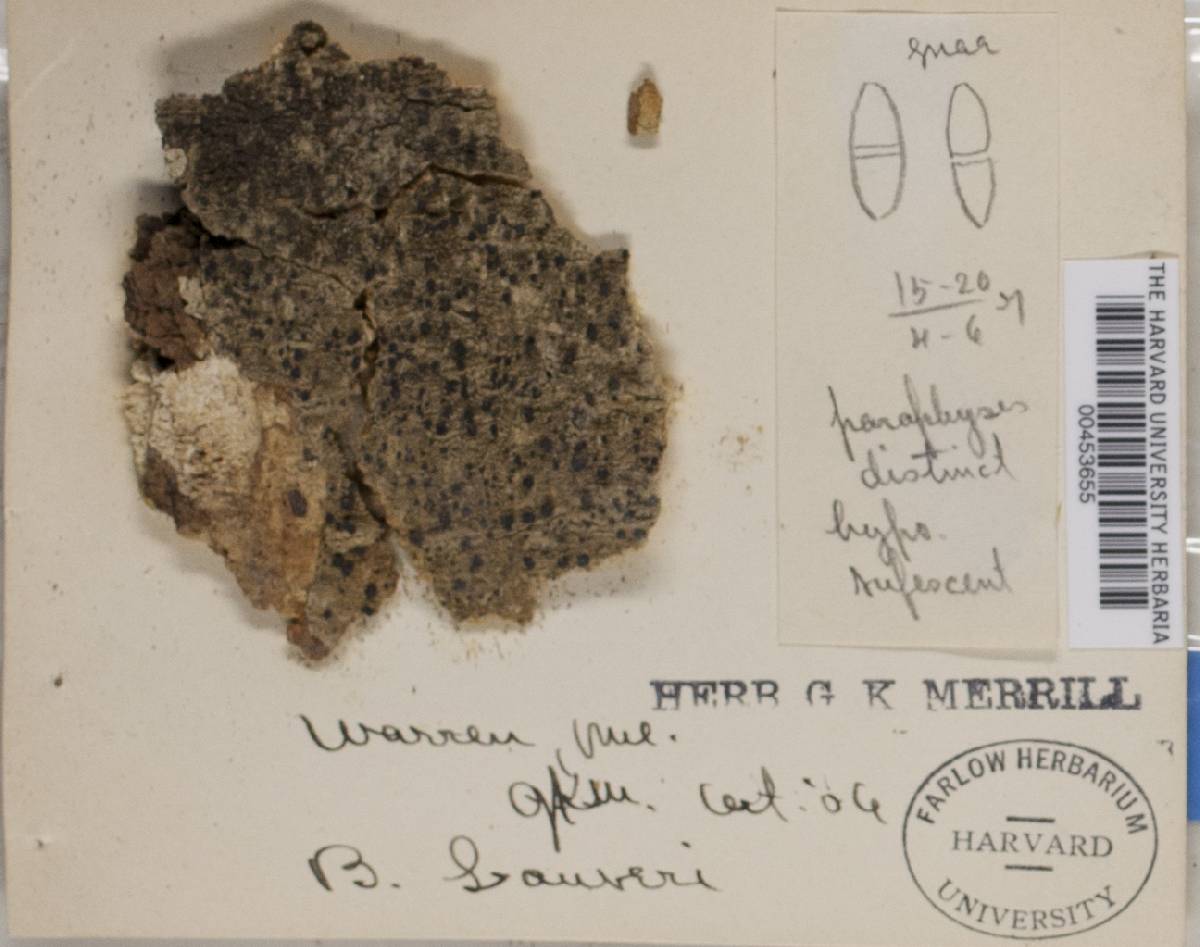 15-20
4-6 μ
paraphyses
distinct
hypo.
rufescent
THE HARVARD UNIVERSITY HERBARIA
00453655
HERB G K MERRILL
Warren, Me.
GKM. Oct. '06
B.
FARLOW HERBARIUM
HARVARD
UNIVERSITY